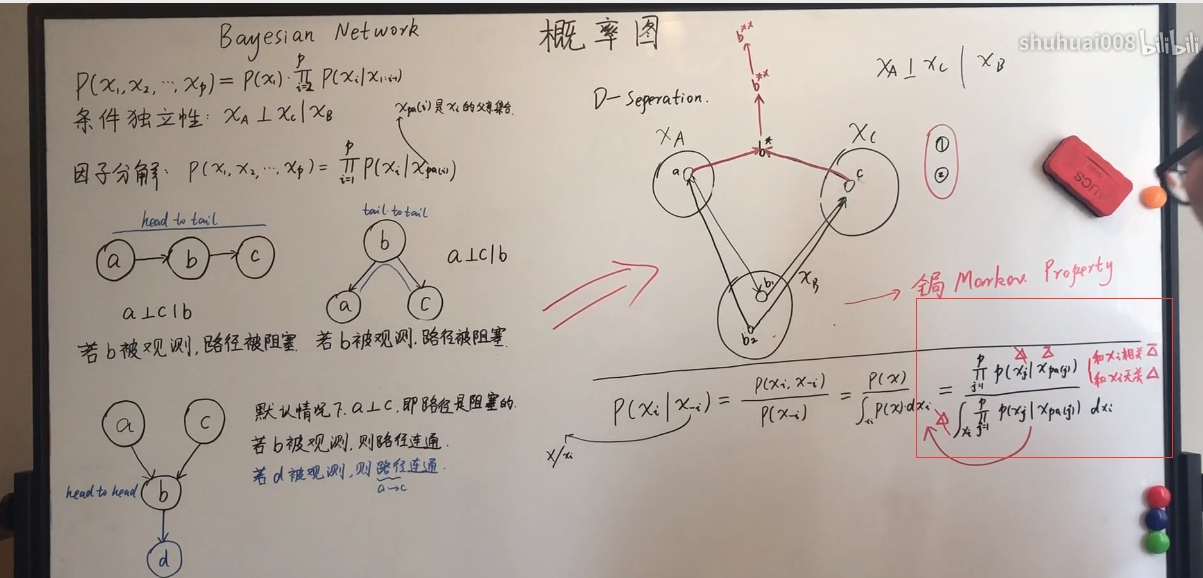 Bayesian Network
概率图
shuhuai008 bilibili
P(x₁,x₂,…,xₚ) = P(x₁)·∏ᵢ₌₂ᵖ P(xᵢ|x₁:ᵢ₋₁)
条件独立性: x_A ⊥ x_C | x_B
x_pa(i)是xᵢ的父亲集合
因子分解: P(x₁,x₂,…xₚ) = ∏ᵢ₌₁ᵖ P(xᵢ|x_pa(i))
head to tail
a b c
a⊥c|b
若b被观测,路径被阻塞
tail to tail
b
a c
a⊥c|b
若b被观测,路径被阻塞.
a c
head to head b
d
默认情况下.a⊥c,即路径是阻塞的.
若b被观测,则路径连通.
若d被观测,则路径连通
a→c
D-Seperation.
x_A ⊥ x_C | x_B
b**
b**
b*
x_A x_C
a c
b₁ x_B
b₂
①
②
全局 Markov Property
P(xᵢ|x₋ᵢ) = P(xᵢ,x₋ᵢ) / P(x₋ᵢ) = P(x) / ∫_xᵢ P(x)·dxᵢ = ∏ⱼ₌₁ᵖ P(xⱼ|x_pa(j)) / ∫_xᵢ ∏ⱼ₌₁ᵖ P(xⱼ|x_pa(j)) dxᵢ
x/xᵢ
Δ Δ̄
Δ
和xᵢ相关 Δ̄
和xᵢ无关 Δ